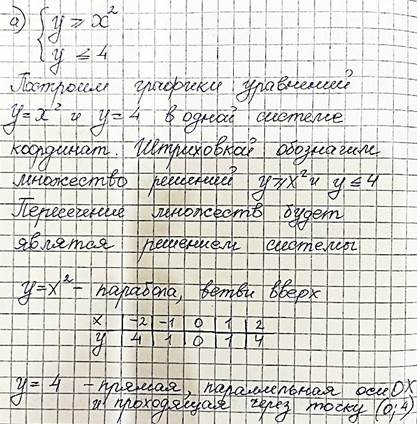 а) { y ⩾ x²
y ≤ 4
Построим графики уравнений
y=x² и y=4 в одной системе
координат. Штриховкой обозначим
множество решений y⩾x² и y≤4
Пересечение множеств будет
являтся решением системы
y=x² - парабола, ветви вверх
x -2 -1 0 1 2
y 4 1 0 1 4
y=4 - прямая, параллельная оси OX
и проходящая через точку (0;4)